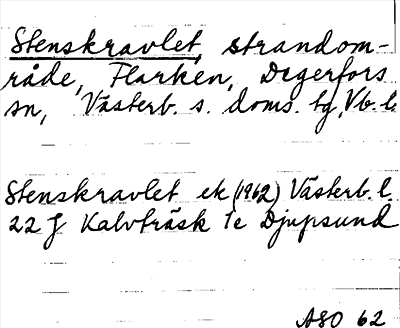 Stenskravlet, strandom-
råde, Flarken, Degerfors
sn, Västerb. s. doms. tg, Vb. l.
Stenskravlet ek (1962) Västerb. l.
22 J Kalvträsk 1e Djupsund
ASO 62